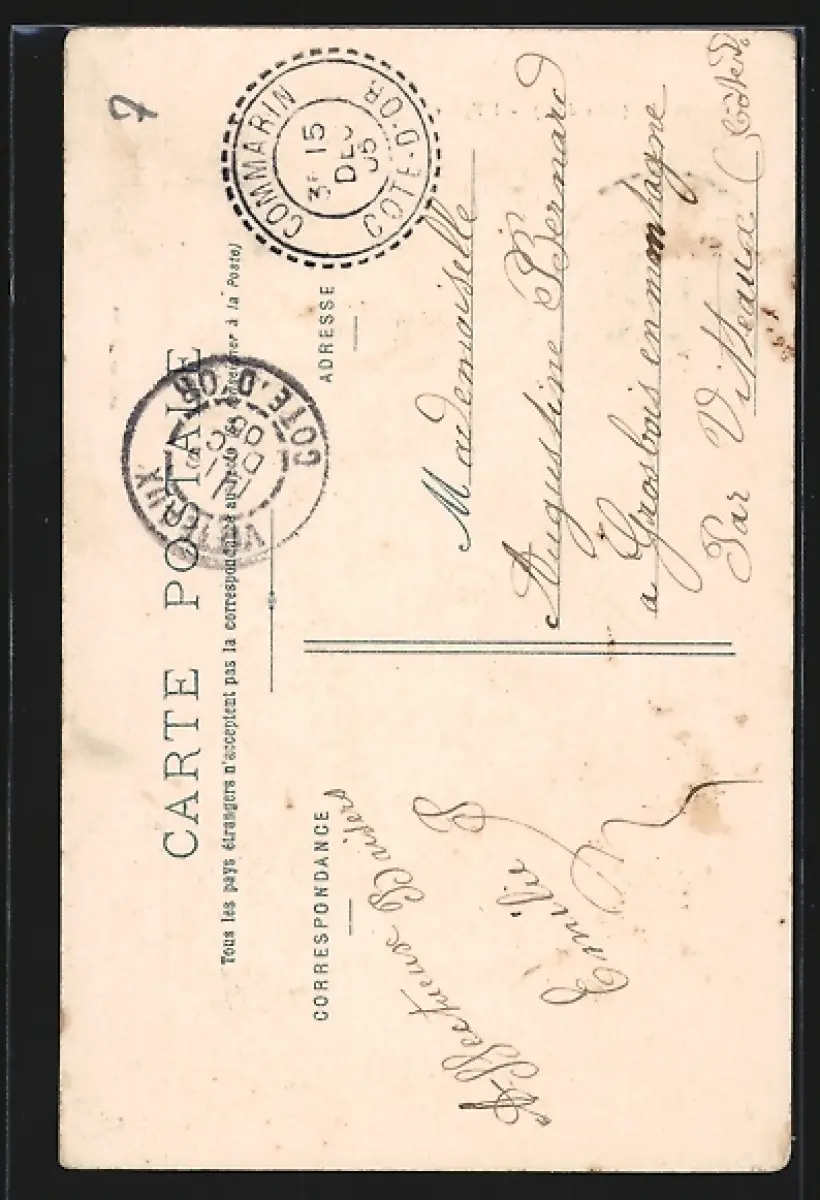 7
COMMARIN
CÔTE-D'OR
3E 15
DEC
05
VITTEAUX
CÔTE-D'OR
CARTE POSTALE
Tous les pays étrangers n'acceptent pas la correspondance au recto (Se renseigner à la Poste)
CORRESPONDANCE
ADRESSE
Affectueux Baisers
Emilie B
Mademoiselle
Augustine Bernard
a Grosbois en montagne
Par Vitteaux Côte d'Or